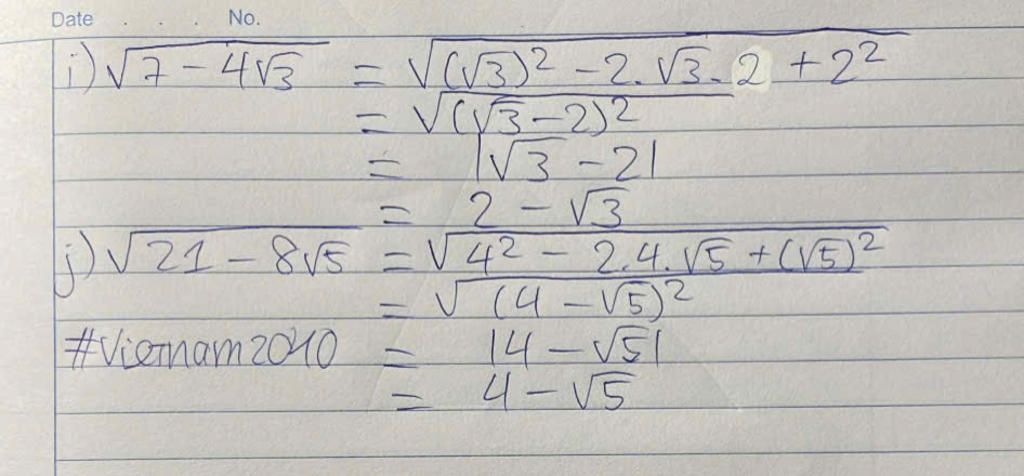 Date . . . No.
i) √(7 − 4√3) = √((√3)² − 2.√3.2 + 2²)
= √((√3−2)²)
= |√3 − 2|
= 2 − √3
j) √(21 − 8√5) = √(4² − 2.4.√5 + (√5)²)
= √((4 − √5)²)
#Vietnam2040 = |4 − √5|
= 4 − √5